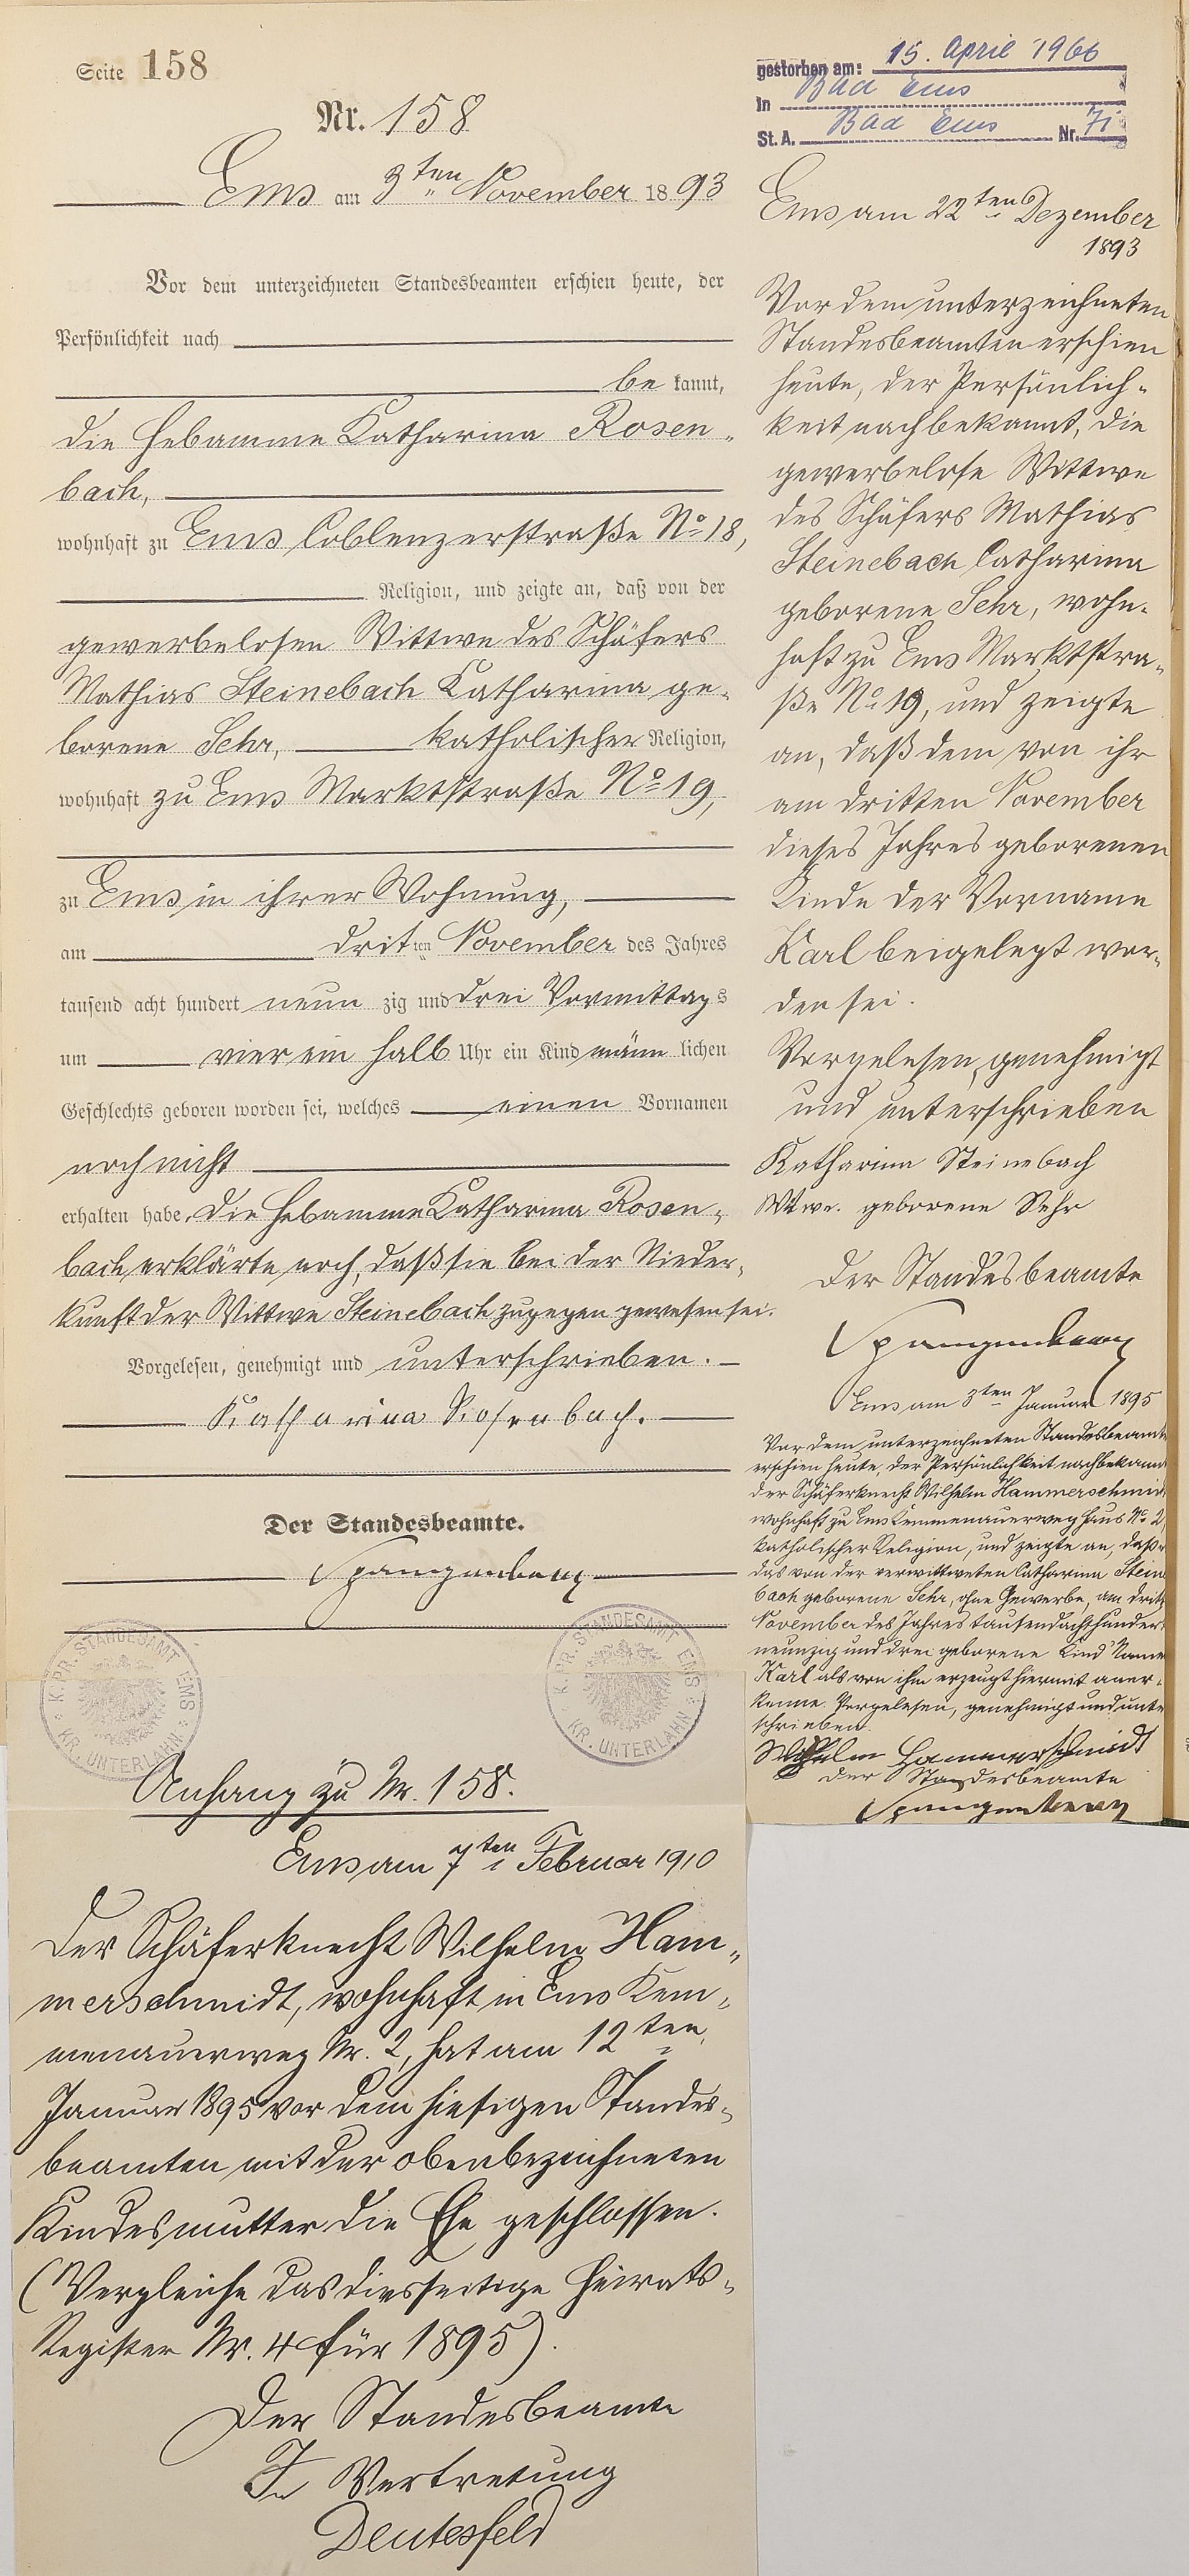 Seite 158
Nr. 158
Ems am 3ten November 1893
Vor dem unterzeichneten Standesbeamten erschien heute, der
Persönlichkeit nach
be kannt,
die Hebamme Katharina Rosen-
bach,
wohnhaft zu Ems Coblenzerstraße No 18,
Religion, und zeigte an, daß von der
gewerbelosen Wittwe des Schäfers
Mathias Steinebach Katharina ge-
borene Sehr, katholischer Religion,
wohnhaft zu Ems Marktstraße No 19,
zu Ems in ihrer Wohnung,
am dritten November des Jahres
tausend acht hundert neunzig und drei Vormittags
um vier ein halb Uhr ein Kind männlichen
Geschlechts geboren worden sei, welches einen Vornamen
noch nicht
erhalten habe. Die Hebamme Katharina Rosen-
bach erklärte noch, daß sie bei der Nieder-
kunft der Wittwe Steinebach zugegen gewesen sei.
Vorgelesen, genehmigt und unterschrieben.
Katharina Rosenbach.
Der Standesbeamte.
Spangenberg
K. PR. STANDESAMT EMS
KR. UNTERLAHN
K. PR. STANDESAMT EMS
KR. UNTERLAHN
gestorben am: 15. April 1966
in Bad Ems
St. A. Bad Ems Nr. 71
Ems am 22ten Dezember
1893
Vor dem unterzeichneten
Standesbeamten erschien
heute, der Persönlich-
keit nach bekannt, die
gewerbelose Wittwe
des Schäfers Mathias
Steinebach Catharina
geborene Sehr, wohn-
haft zu Ems Marktstra-
ße No 19, und zeigte
an, daß dem von ihr
am dritten November
dieses Jahres geborenen
Kinde der Vorname
Karl beigelegt wor-
den sei.
Vorgelesen, genehmigt
und unterschrieben
Katharina Steinebach
Wtwe. geborene Sehr
Der Standesbeamte
Spangenberg
Ems am 3ten Januar 1895
Vor dem unterzeichneten Standesbeamte
erschien heute, der Persönlichkeit nach bekannt
der Schäferknecht Wilhelm Hammerschmid
wohnhaft zu Ems Kemmenauerweg Haus No 2,
katholischer Religion, und zeigte an, daß er
das von der verwittweten Catharina Stein
bach geborene Sehr, ohne Gewerbe, am dritt
November des Jahres tausendachthundert
neunzig und drei geborene Kind Name
Karl als von ihm erzeugt hiermit aner-
kenne. Vorgelesen, genehmigt und unte
schrieben.
Wilhelm Hammerschmidt
Der Standesbeamte
Spangenberg
Anhang zu Nr. 158.
Ems am 7ten Februar 1910
Der Schäferknecht Wilhelm Ham-
merschmidt, wohnhaft in Ems Kem-
menauerweg Nr. 2, hat am 12ten
Januar 1895 vor dem hiesigen Standes-
beamten mit der obenbezeichneten
Kindesmutter die Ehe geschlossen.
(Vergleiche das diesseitige Heirats-
Register Nr. 4 für 1895).
Der Standesbeamte
In Vertretung
Deutesfeld